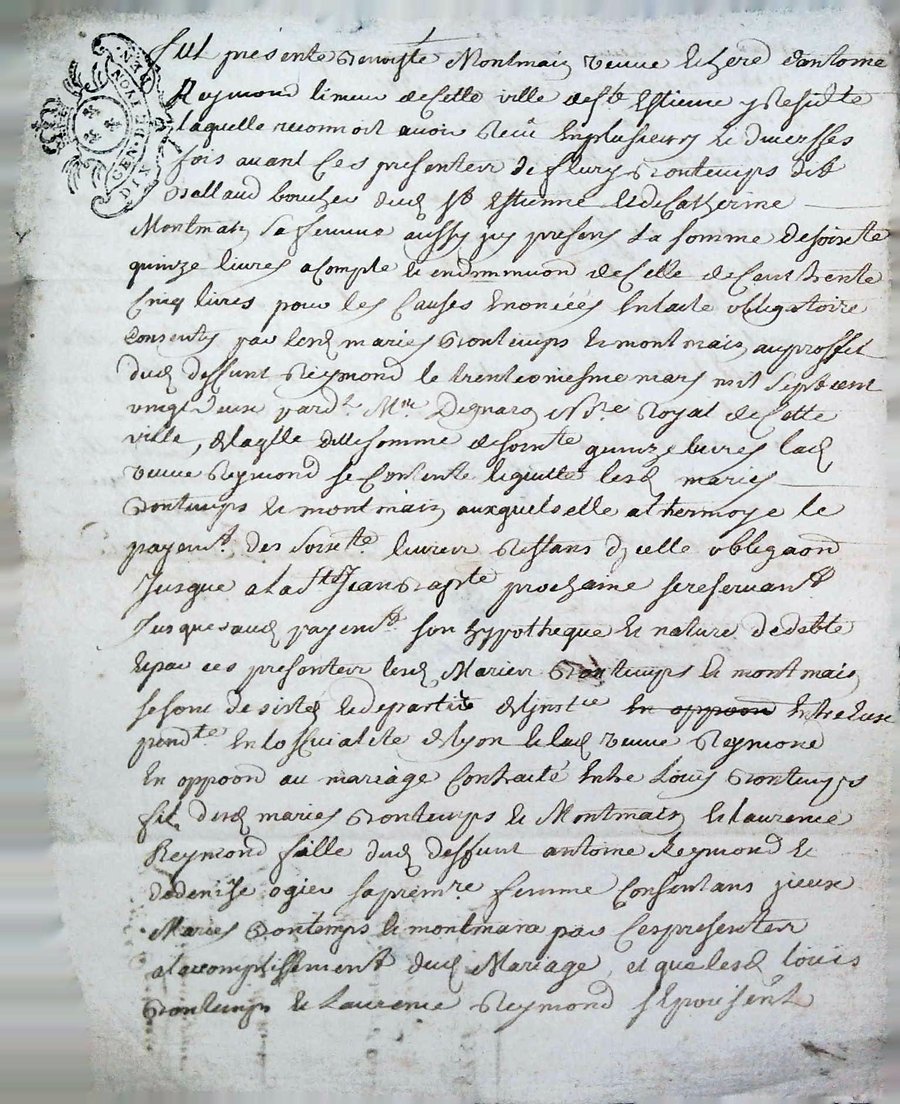 GEN. DE LYON
DIX DEN.
Fut présente Benoiste Montmain veuve & hered. d'antoine
Reymond limeur de cette ville de St Estienne y Residte
laquelle reconnoit avoir Reçû en plusieurs & diversses
fois avant Ces presentes de fleury Bontemps dit
Ballaud boucher dud St Estienne & de Catherine
Montmain sa femme aussy icy presens La somme de soixte
quinze livres a compte & en diminution de Celle de Cent trente
Cinq livres pour les Causes Enoncées En lacte obligatoire
Consenty par lesd maries Bontemps & montmain au proffit
dud deffunt Reymond le trente mars mil Sept cent
vingt deux pard.t Me Not.e Royal de Cette
ville, de laqlle ditte somme de soixte quinze livres lad
veuve Reymond se Contente & quitte lesd maries
Bontemps & montmain auxquels elle athermoye le
payem.t des soixte livres Restans dycelle obligaon
Jusque a la St Jean Bapte prochaine se reservant
Jusques aud payem.t son hypotheque & nature de debte
& par ces presentes lesd Maries Bontemps & montmain
se sont desistés & departis de linst.ce en oppoon Entre eux
pend.te En la de lyon & lad veuve Reymond
En oppoon au mariage Contracté Entre Louis Bontemps
fils desd maries Bontemps & Montmain & laurence
Reymond fille dud deffunt antoine Reymond &
de denise ogier sa premre femme Consentans iceux
Maries Bontemps & montmain par Ces presentes
a laccomplissement dud Mariage, et que lesd Louis
Bontemps & Laurence Reymond sepousent